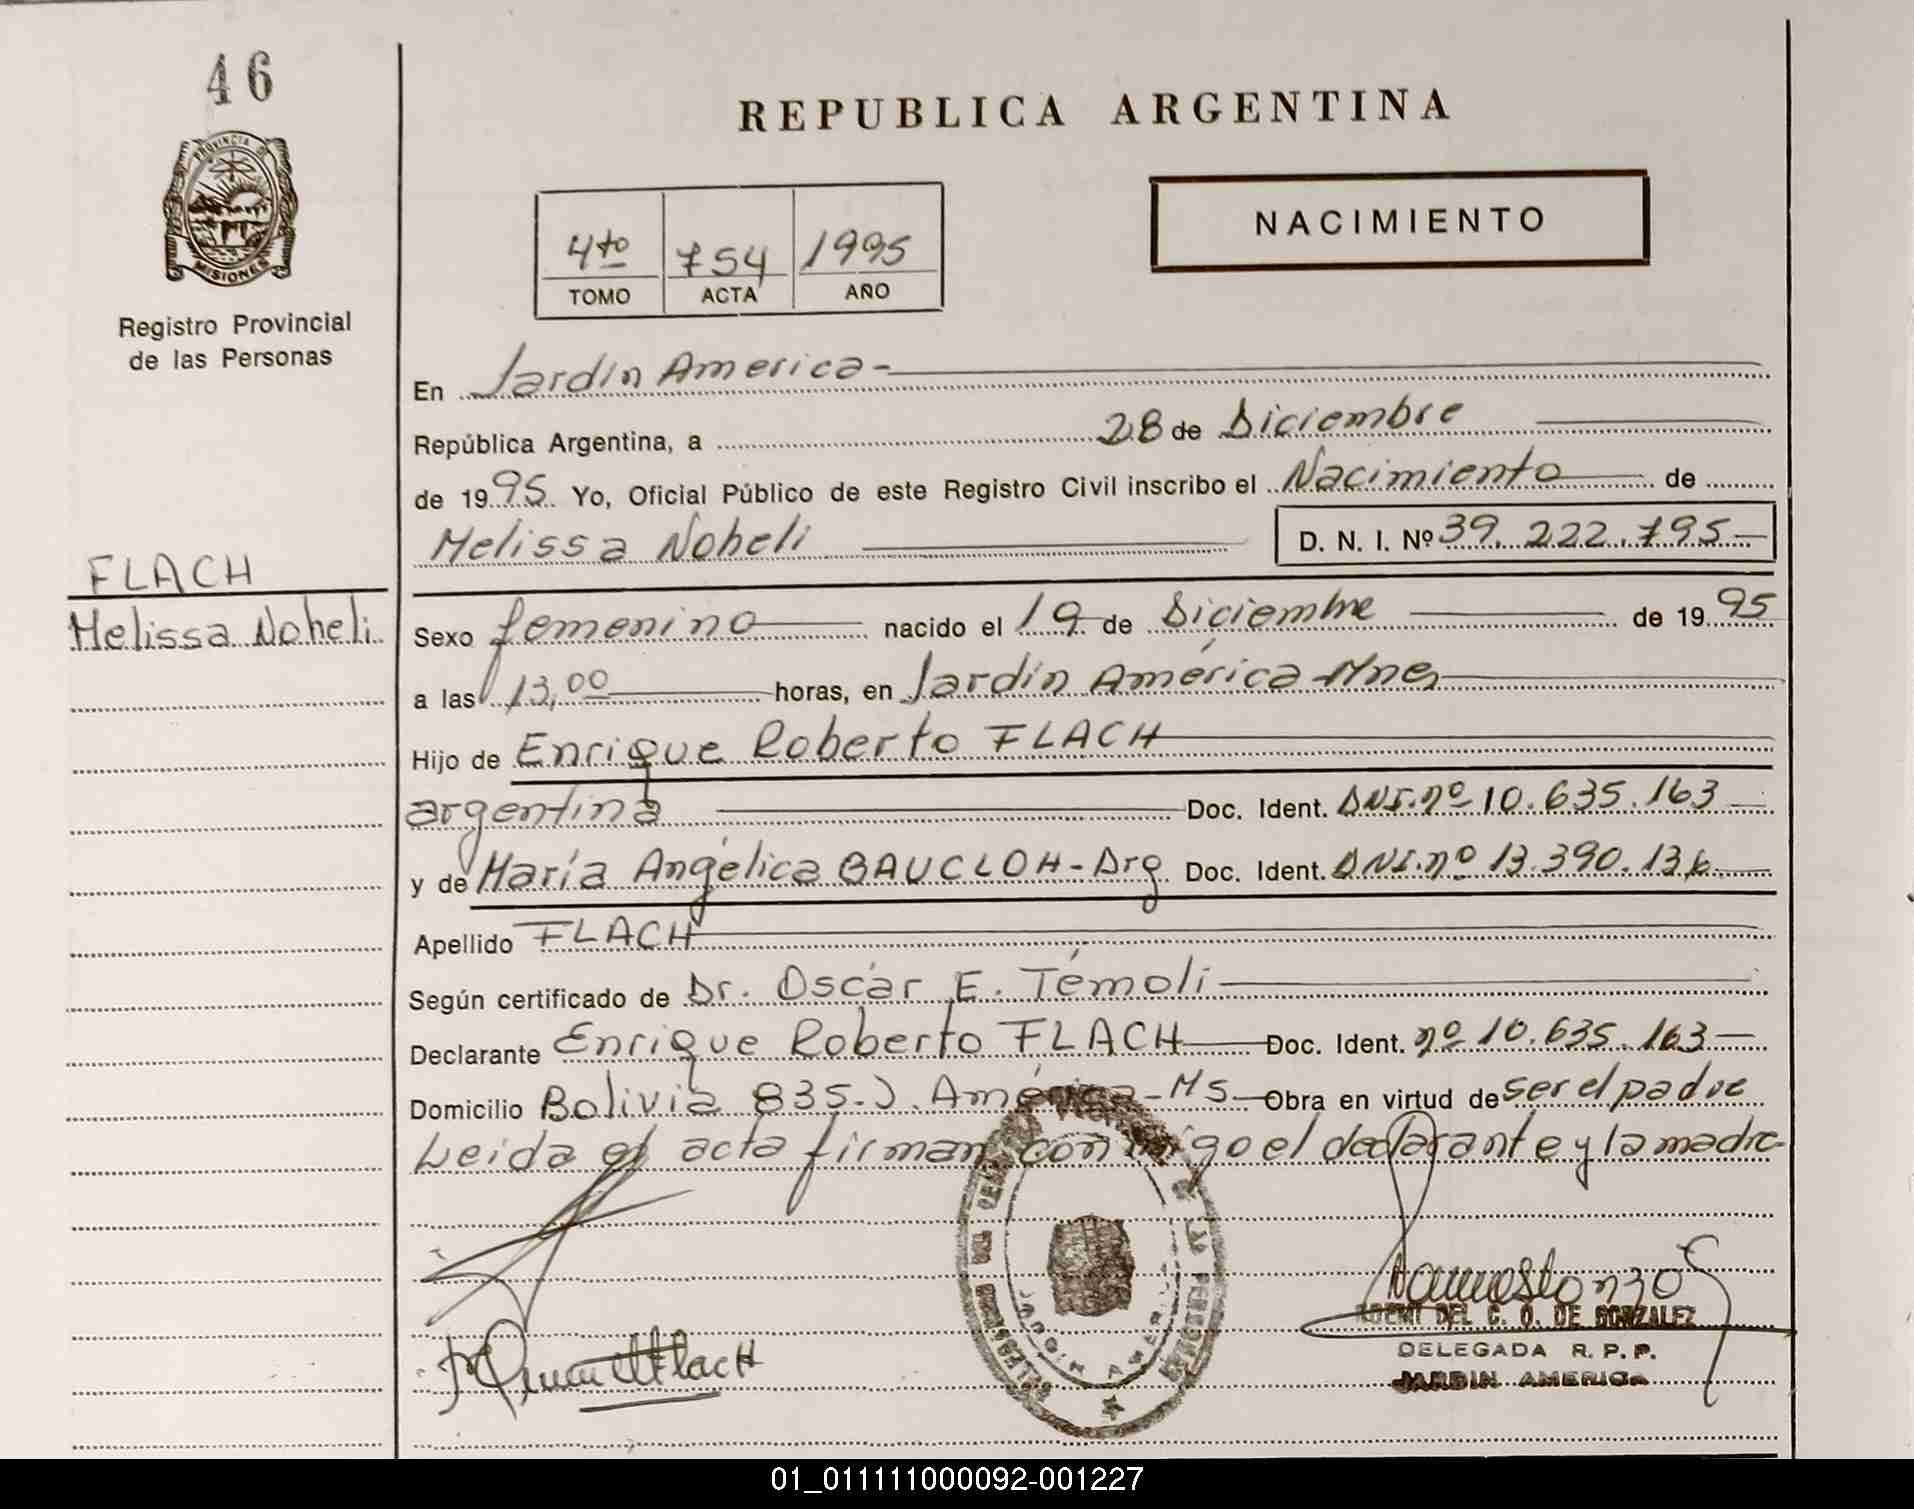 46
REPUBLICA ARGENTINA
PROVINCIA D
MISIONES
Registro Provincial
de las Personas
NACIMIENTO
4to 754 1995
TOMO ACTA AÑO
En Jardin America -
República Argentina, a 28 de Diciembre
de 1995 Yo, Oficial Público de este Registro Civil inscribo el Nacimiento de
Melissa Noheli D. N. I. Nº 39.222.795-
FLACH
Melissa Noheli
Sexo femenino nacido el 19 de Diciembre de 1995
a las 13,00 horas, en Jardin América Mnes
Hijo de Enrique Roberto FLACH
argentina Doc. Ident. DNI. nº 10.635.163
y de María Angélica BAUCLOH - Arg Doc. Ident. DNI. nº 13.390.136
Apellido FLACH
Según certificado de Dr. Oscar E. Témoli
Declarante Enrique Roberto FLACH Doc. Ident. nº 10.635.163
Domicilio Bolivia 835-J. América-Ms Obra en virtud de ser el padre
Leida el acta firman conmigo el declarante y la madre
JARDIN AMERICA
DEL C. O. DE GONZALEZ
DELEGADA R. P. P.
JARDIN AMERICA
Flach
01_011111000092-001227